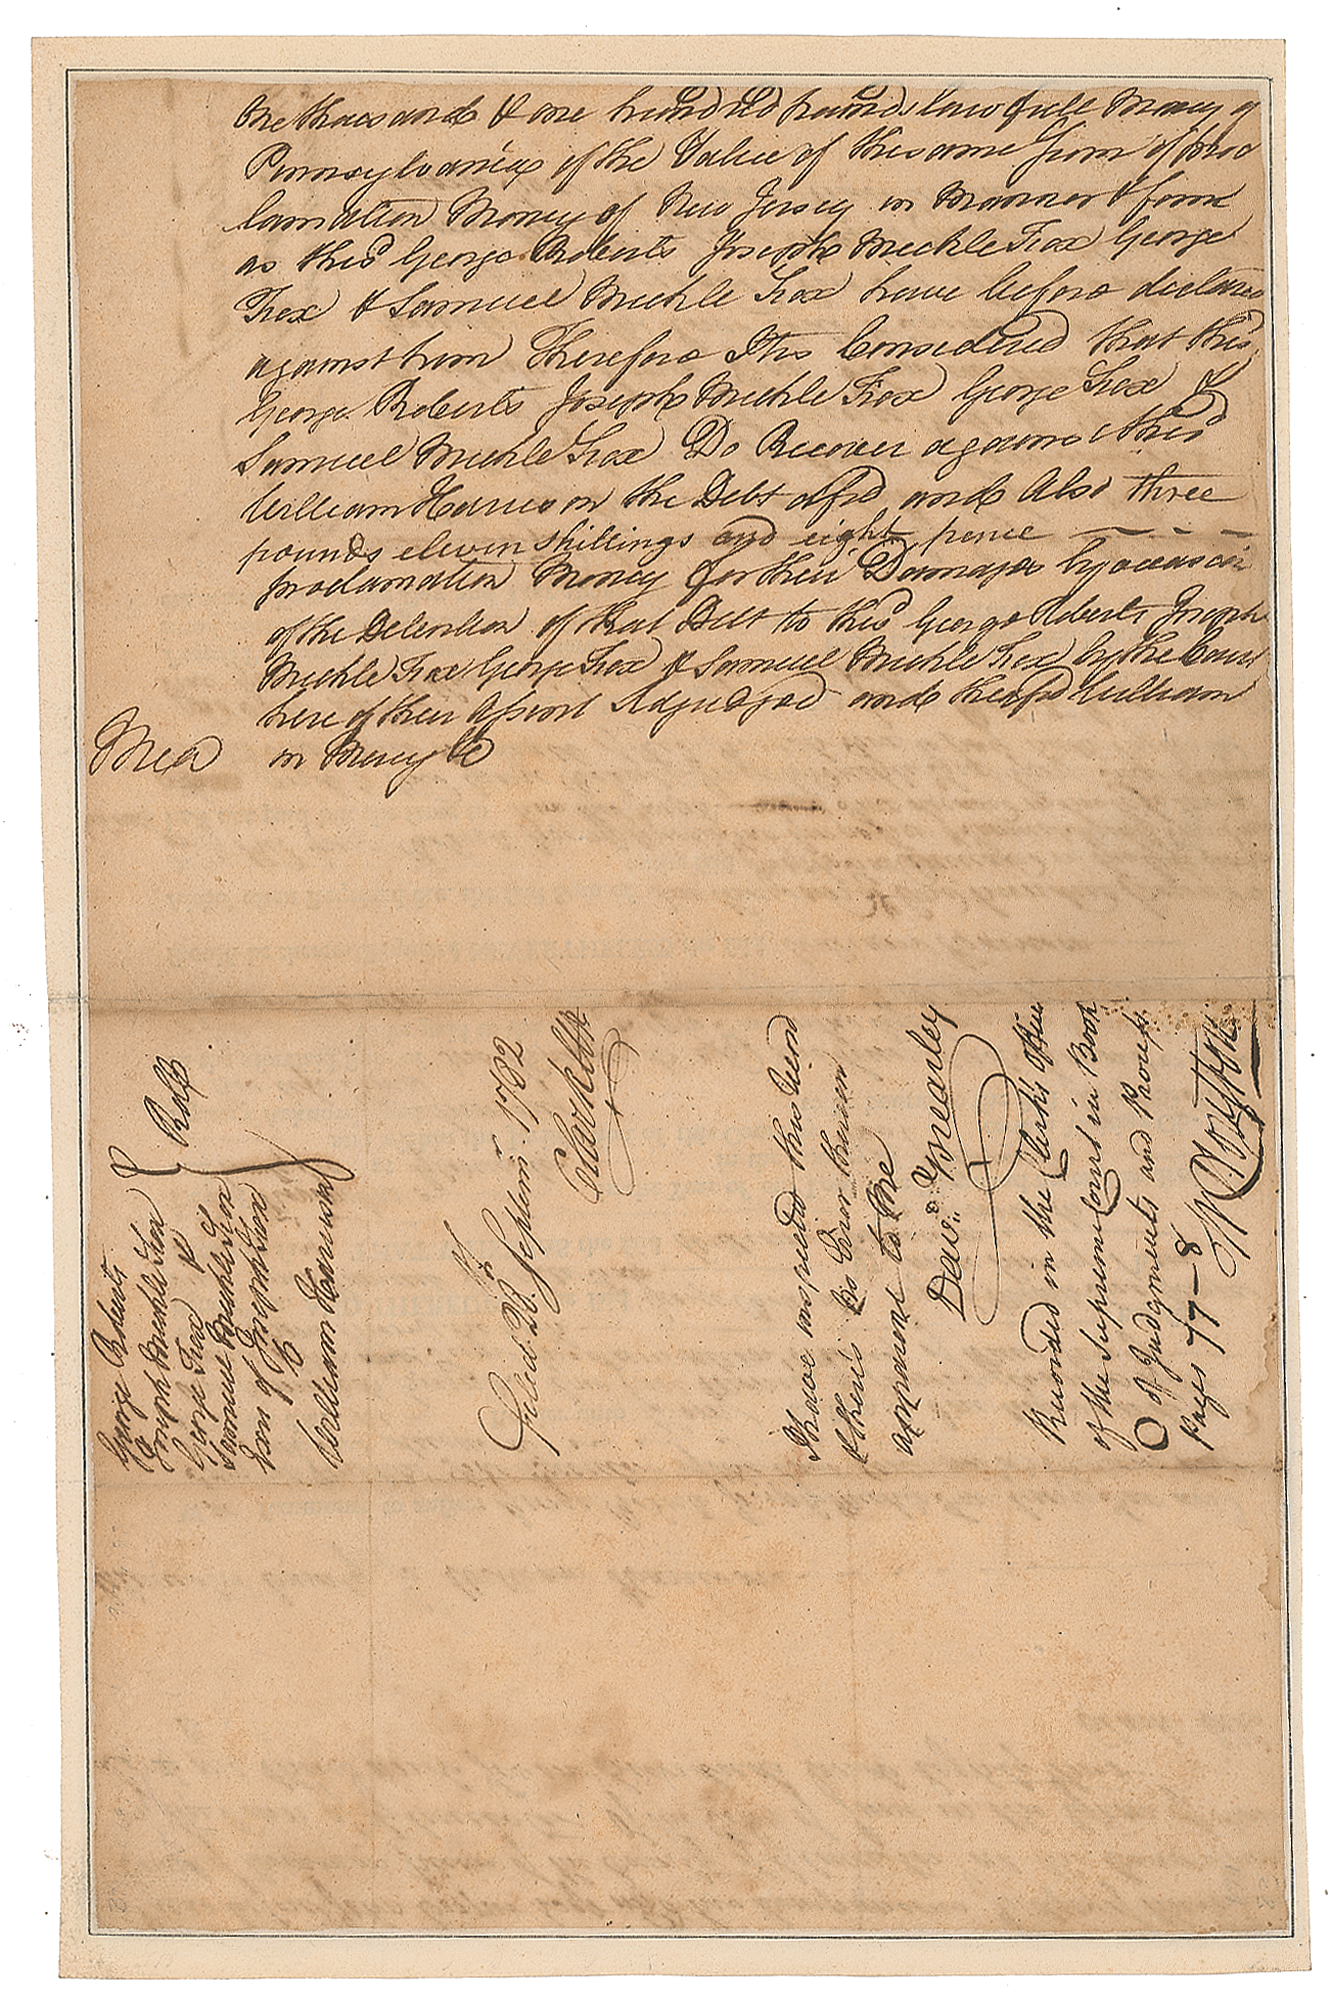 one thousand & one hundred pounds lawfull Money of
Pennsylvania of the Value of the same Sum of proc
lamation Money of New Jersey in Manner & form
as the sd George Roberts Joseph Mickle Fox George
Fox & Samuel Mickle Fox have before declared
against him Therefore It is Considered that the sd
George Roberts Joseph Mickle Fox George Fox &
Samuel Mickle Fox Do Recover against the sd
William Harrison the Debt afsd and Also three
pounds eleven shillings and eight pence
proclamation Money for their Damages by occasion
of the Detention of that Debt to the sd George Roberts Joseph
Mickle Fox George Fox & Samuel Mickle Fox by the Court
here of their Assent Adjudged and the afsd William
Mea in Mercy &c
George Roberts
Joseph Mickle Fox
George Fox &
Samuel Mickle Fox
Exrs of Joseph Fox
William Harrison
Roll
Filed 28. Septemr. 1782
Clark
I have inspected this Record
& there is no Error herein
apparent to Me
Davd. Brearley
Recorded in the Clerk's Office
of the Supreme Court in Book
O of Judgments and Roll
pages 77-8